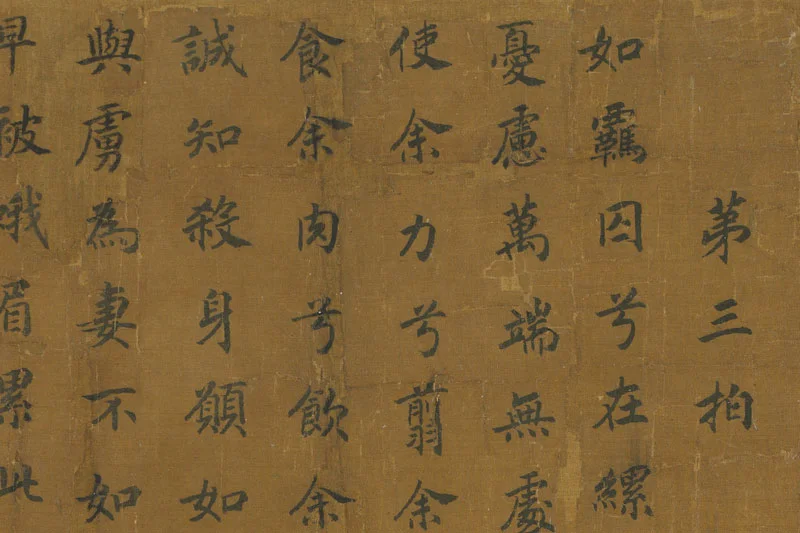 第三拍
如羈囚兮在縲
憂慮萬端無處
使余力兮翦余
食余肉兮飲余
誠知殺身願如
與虜為妻不如
早被蛾眉累此